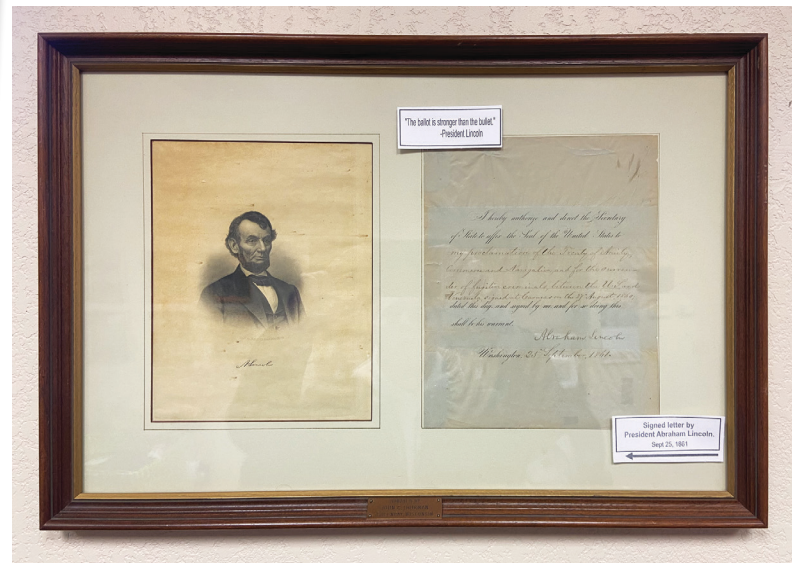 "The ballot is stronger than the bullet."
-President Lincoln
A. Lincoln
I hereby authorize and direct the Secretary
of State to affix the Seal of the United States to
my proclamation of the Treaty of Amity,
Commerce and Navigation and for the surrender
of fugitive criminals between the U.S. and
signed at on the 29 August
dated this day, and signed by me and for so doing this
shall be his warrant.
Abraham Lincoln
Washington, 25 September, 1861.
Signed letter by
President Abraham Lincoln.
Sept 25, 1861